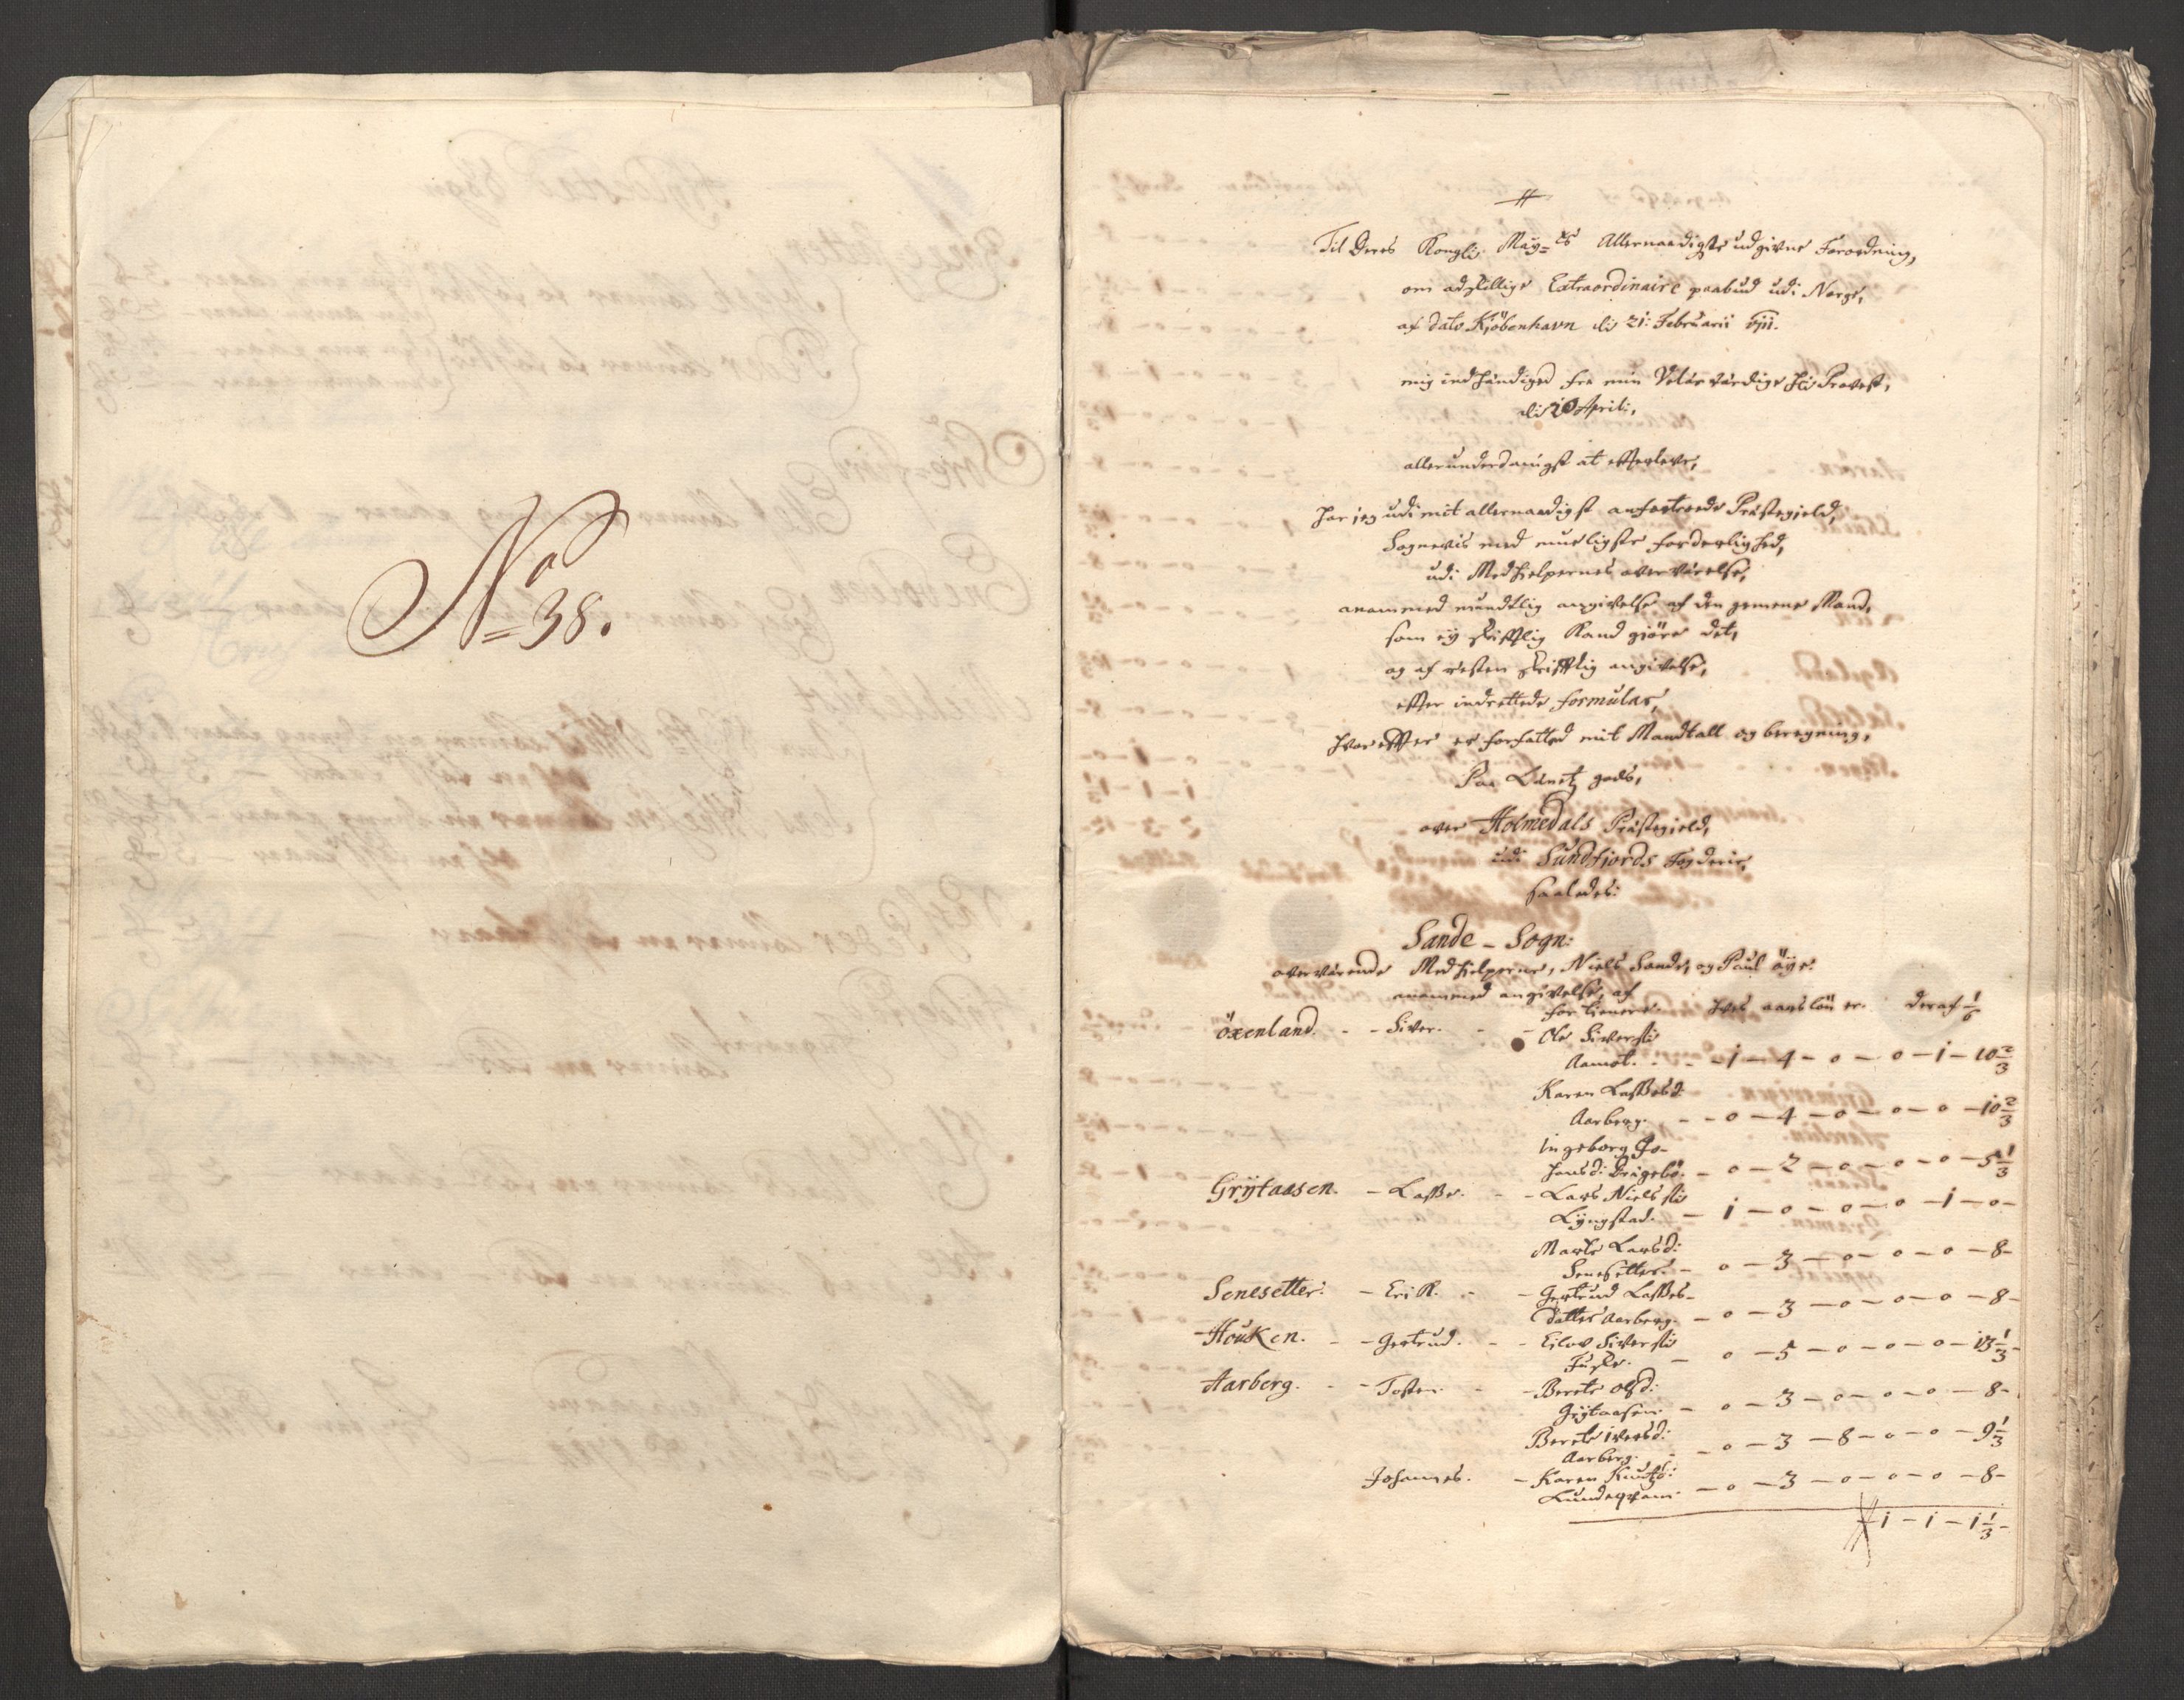 No
38.
Til Deres Konglig: May-ts Allernaadigste udgivne Forordning,
om adskillige Extraordinaire paabud udi Norge,
af dato Kiöbenhavn di 21: Februarii
mig indhändiged fra min Velærværdige Hr Provst,
di 20 April:,
allerunderdanigst at effterleve,
har jeg udi mit allernaadigst anfortroede Præstegield,
Sognevis med mueligste forderlighed,
udi Medhielpernes overværelse,
anammed mundtlig angivelse af den gemene Mand,
som ey skrifftlig Kand giöre det,
og af resten skrifftlig angivelse,
effter indrettede formular,
hvoreffter er forfatted mit Mandtall og beregning,
Paa gods,
over Holmedals Præstegield,
udi Sundfjords Fogderie,
saaledes:
Sande - Sogn:
overværende Medhielperne, Niels Sande, og Paul öye.
anammed angivelse, af
for tienere. hves aarslön er. deraf 1/6
öxenland. - - Siver. - - Ole Siversön
Aamot. - - 1 - 4 - 0 - 0 - 1 - 10 2/3
Karen Lasses d:
Aarberg. - - 0 - 4 - 0 - 0 - 0 - 10 2/3
Ingeborg Jo-
hans d: Dragebö. - 0 - 2 - 0 - 0 - 0 - 5 1/3
Grÿtaasen. - Lasse. - - Lars Niels sön
Lÿngstad. - 1 - 0 - 0 - 0 - 1 - 0 -
Marte Lars d:
Senesetter. - 0 - 3 - 0 - 0 - 0 - 8 -
Senesetter. - Erik. - - Gertrud Lasses-
datter Aarberg. - 0 - 3 - 0 - 0 - 0 - 8 -
Houken. - - Gertrud. - - Eilov Siversön
- 0 - 5 - 0 - 0 - 0 - 13 1/3 -
Aarberg. - - Tosten. - - Berete Ols d:
Grÿtaasen. - 0 - 3 - 0 - 0 - 0 - 8 -
Berete ivers d:
Aarberg. - - 0 - 3 - 8 - 0 - 0 - 9 1/3
Johannes. - Karen Knutz d:
- 0 - 3 - 0 - 0 - 0 - 8 -
1 - 1 - 1 1/3 -